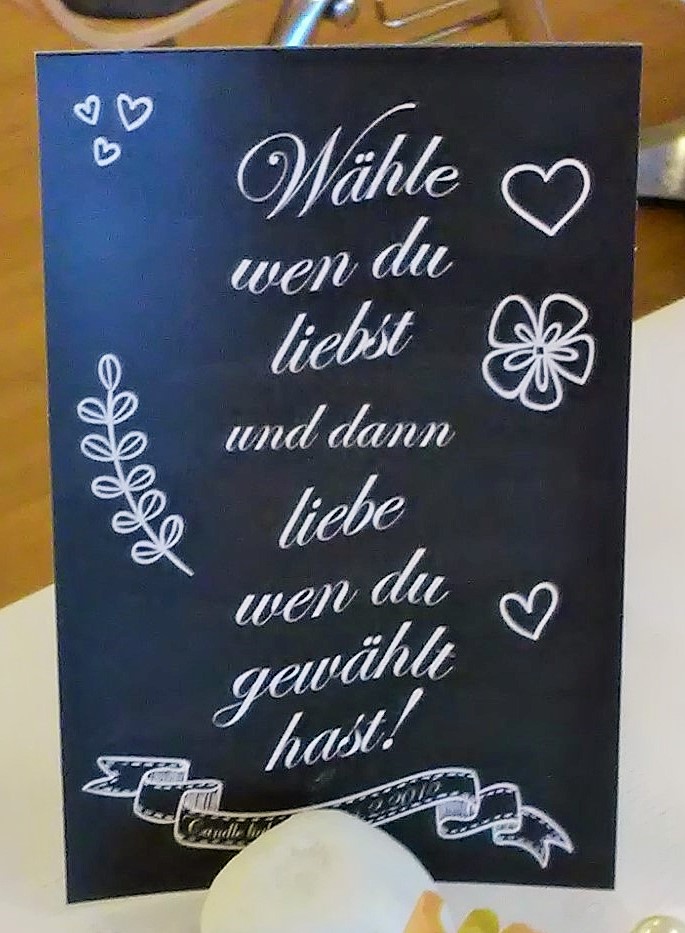 Wähle
wen du
liebst
und dann
liebe
wen du
gewählt
hast!
Candle